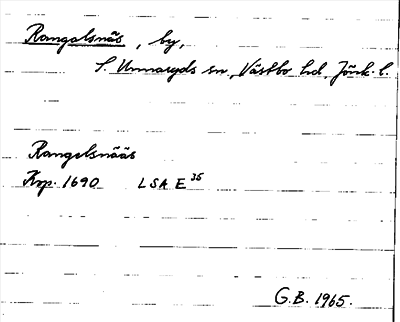 Rangelsnäs, by,
S. Unnaryds sn, Västbo hd, Jönk. l.
Rangelsnääs
Kop. 1690 LSA E 35
G.B. 1965.